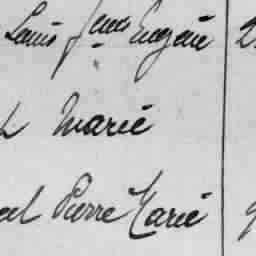 Louis James Eugène 2
h Marie
el Pierre Marie 9